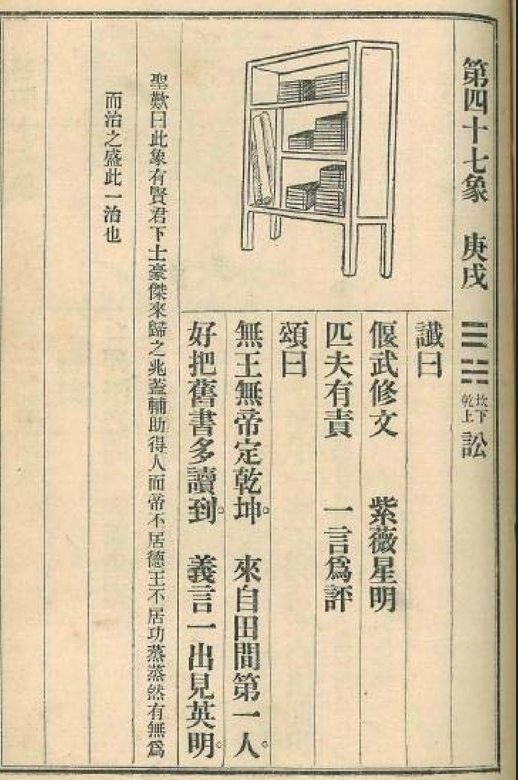 第四十七象 庚戌 坎下乾上 訟
讖曰
偃武修文 紫薇星明
匹夫有責 一言爲評
頌曰
無王無帝定乾坤。 來自田間第一人。
好把舊書多讀到。 義言一出見英明。
聖歎曰此象有賢君下士豪傑來歸之兆蓋輔助得人而帝不居德王不居功蒸蒸然有無爲
而治之盛此一治也